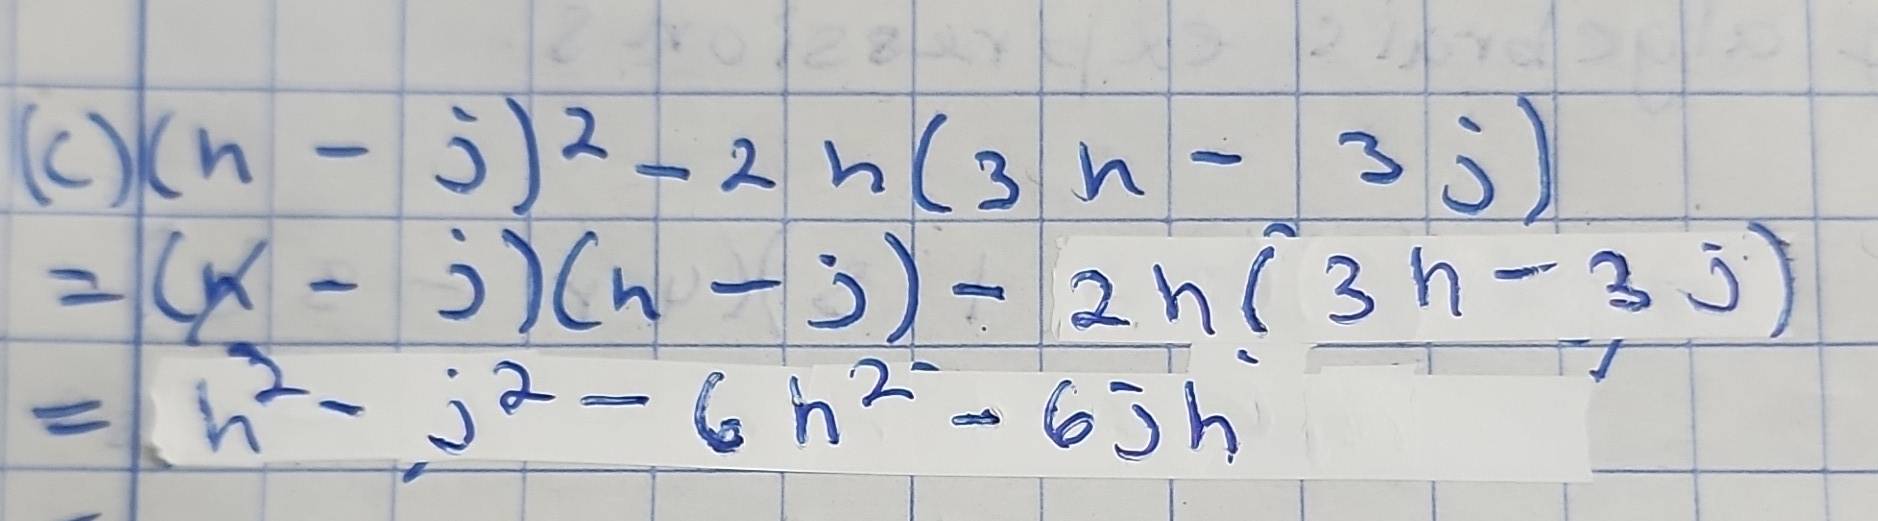 (c) (h - j)² - 2h(3h - 3j)
= (h - j)(h - j) - 2h(3h - 3j)
= h² - j² - 6h² - 6jh